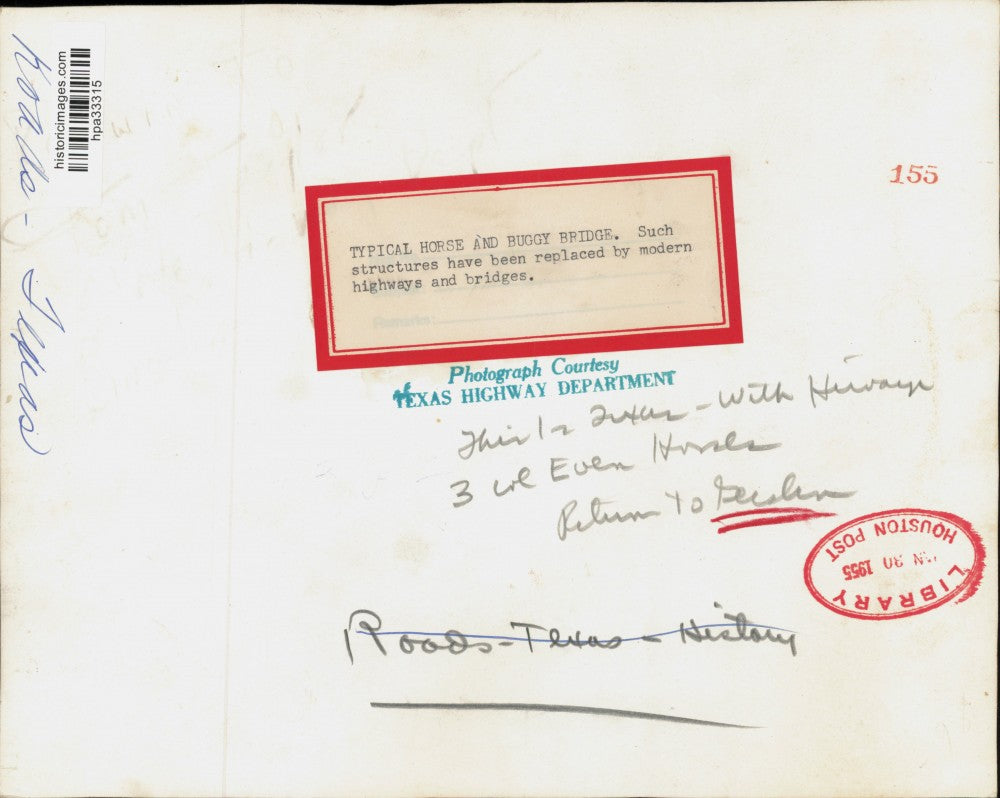 Roads - Texas
historicimages.com
hpa33315
155
TYPICAL HORSE AND BUGGY BRIDGE. Such
structures have been replaced by modern
highways and bridges.
Remarks:
Photograph Courtesy
TEXAS HIGHWAY DEPARTMENT
This Is Texas - With
3 col Even Horses
Return to
HOUSTON POST
JAN 30 1955
LIBRARY
Roads - Texas - History